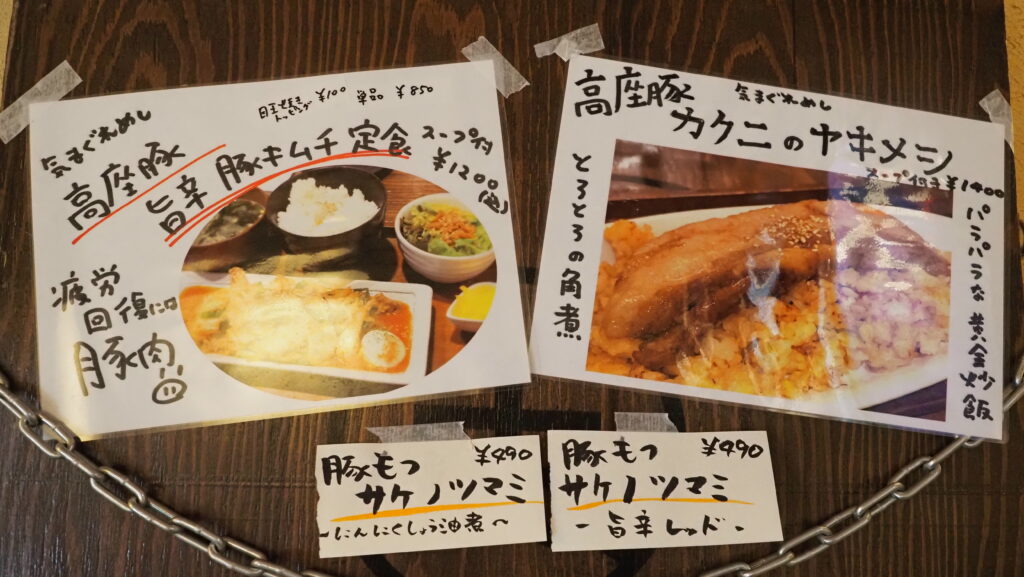 気まぐれめし
目玉焼き
トッピング ¥100 単品 ¥850
高座豚
旨辛 豚キムチ定食
スープ付
¥1200(込)
疲労
回復には
豚肉
気まぐれめし
高座豚
カクニのヤキメシ
スープ付き¥1400
とろとろの角煮
パラパラな黄金炒飯
豚もつ ¥490
サケノツマミ
~にんにくしょう油煮~
豚もつ ¥490
サケノツマミ
-旨辛レッド-